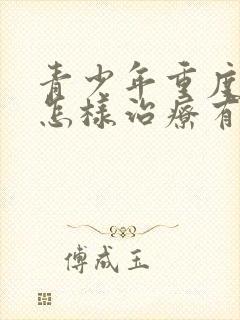 青少年重度
怎樣治療有
傅成玉